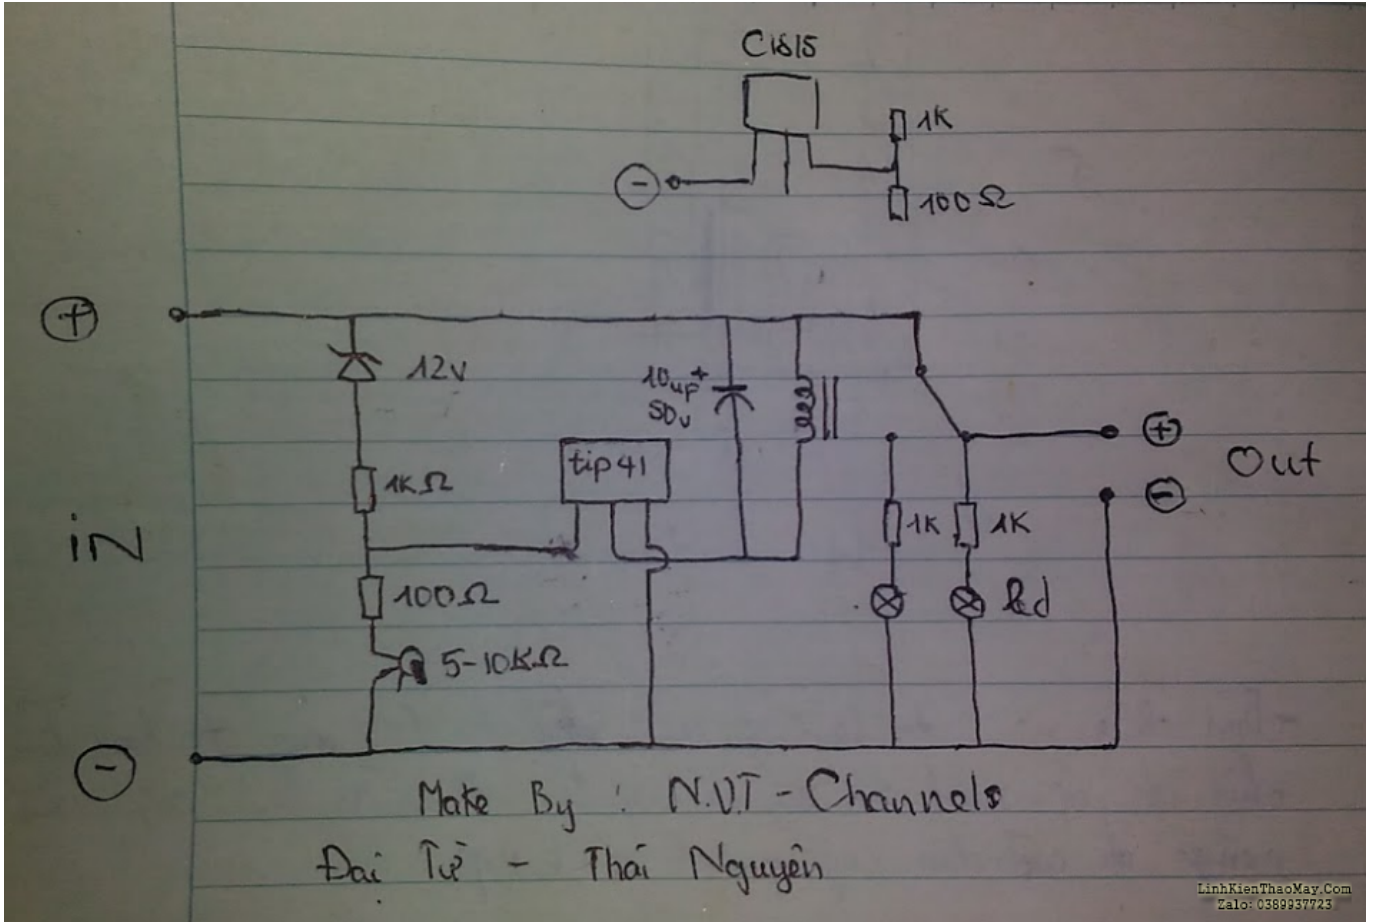 C1815
1K
100Ω
+
12V
10up +
50v
tip 41
+
Out
1KΩ
-
iN
1K
1K
100Ω
led
5-10KΩ
-
Make By : N.V.T - Channels
Đại Từ - Thái Nguyên
LinhKienThaoMay.Com
Zalo: 0389937723